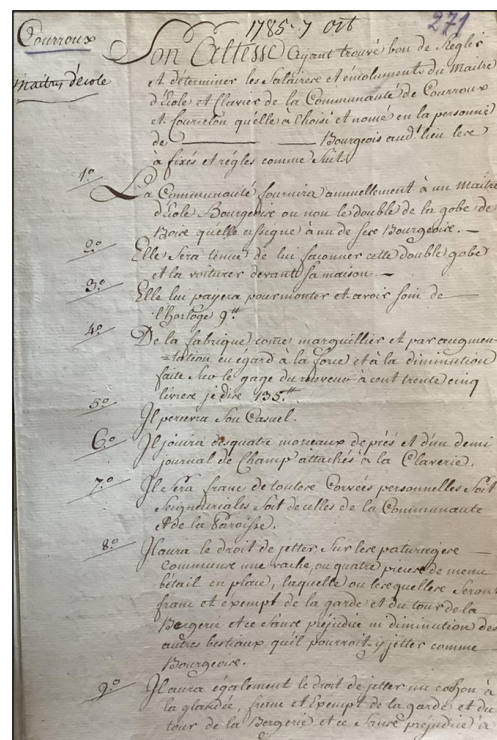 1785. 7 Oct
271
Courroux
Maitres d'école
Son Altesse ayant trouvé bon de Régler
et determiner les salaires et émoluments du Maitre
d'École et Clavier de la Communauté de Courroux
et Courcelon qu'elle a choisi et nomé en la personne
de ——— Bourgeois aud. lieu les
a fixés et réglés comme suit
1.° La Communauté fournira annuellement à un Maitre
d'École Bourgeois ou non le double de la gobe de
Bois qu'elle assigne à un de ses Bourgeois. —
2.° Elle sera tenue de lui façonner cette double gobe
et la voiturer devant sa maison. —
3.° Elle lui payera pour monter et avoir soin de
l'horloge 9 ₶
4.° De la fabrique come marguillier et par augmen-
=tation eu egard à la force et à la diminution
faite sur le gage du à cent trente cinq
livres je dise 135 ₶.
5.° Il percevra son Casuel.
6.° Il jouira des quatre morceaux de prés et d'un demi
journal de Champ attachés à la Claverie.
7.° Il sera franc de toutes Corvées personnelles soit
seigneuriales soit de celles de la Communauté
et de la Paroisse.
8.° Il aura le droit de jetter sur les paturages
communs une vache, ou quatre pieces de menu
bétail en place, laquelle ou lesquelles seront
franc et exempt de la garde et du tour de la
Bergerie et ce sans prejudice ni diminution des
autres bestiaux qu'il pourroit y jetter comme
Bourgeois.
9.° Il aura également le droit de jetter un cochon à
la glandée, franc et exempt de la garde et du
tour de la Bergerie et ce sans prejudice à